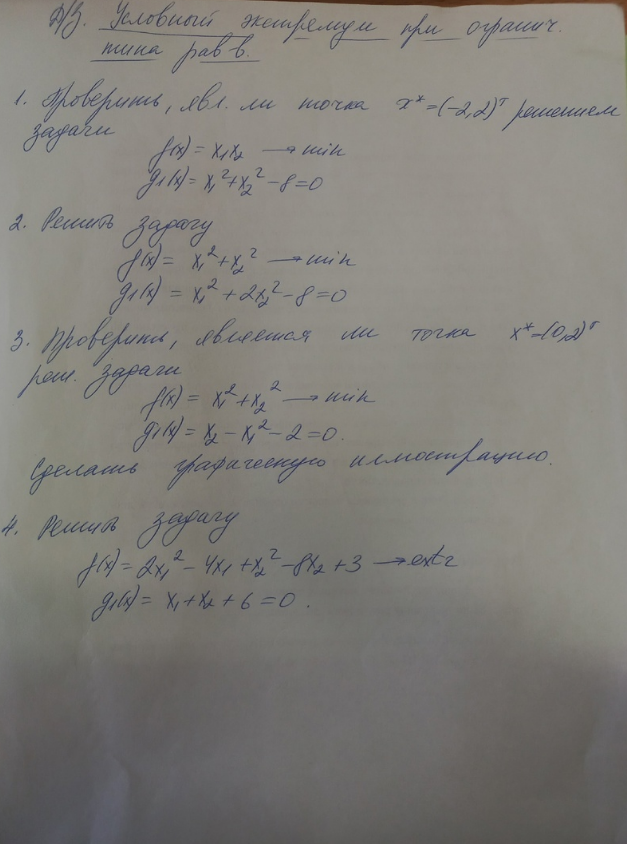 Д/З. Условный экстремум при огранич.
типа рав-в.
1. Проверить, явл. ли точка x*=(-2,2)ᵀ решением
задачи
f(x) = x₁x₂ → min
g₁(x) = x₁² + x₂² - 8 = 0
2. Решить задачу
f(x) = x₁² + x₂² → min
g₁(x) = x₁² + 2x₂² - 8 = 0
3. Проверить, является ли точка x*=(0,2)ᵀ
реш. задачи
f(x) = x₁² + x₂² → min
g₁(x) = x₂ - x₁² - 2 = 0.
Сделать графическую иллюстрацию.
4. Решить задачу
f(x) = 2x₁² - 4x₁ + x₂² - 8x₂ + 3 → extr
g₁(x) = x₁ + x₂ + 6 = 0.